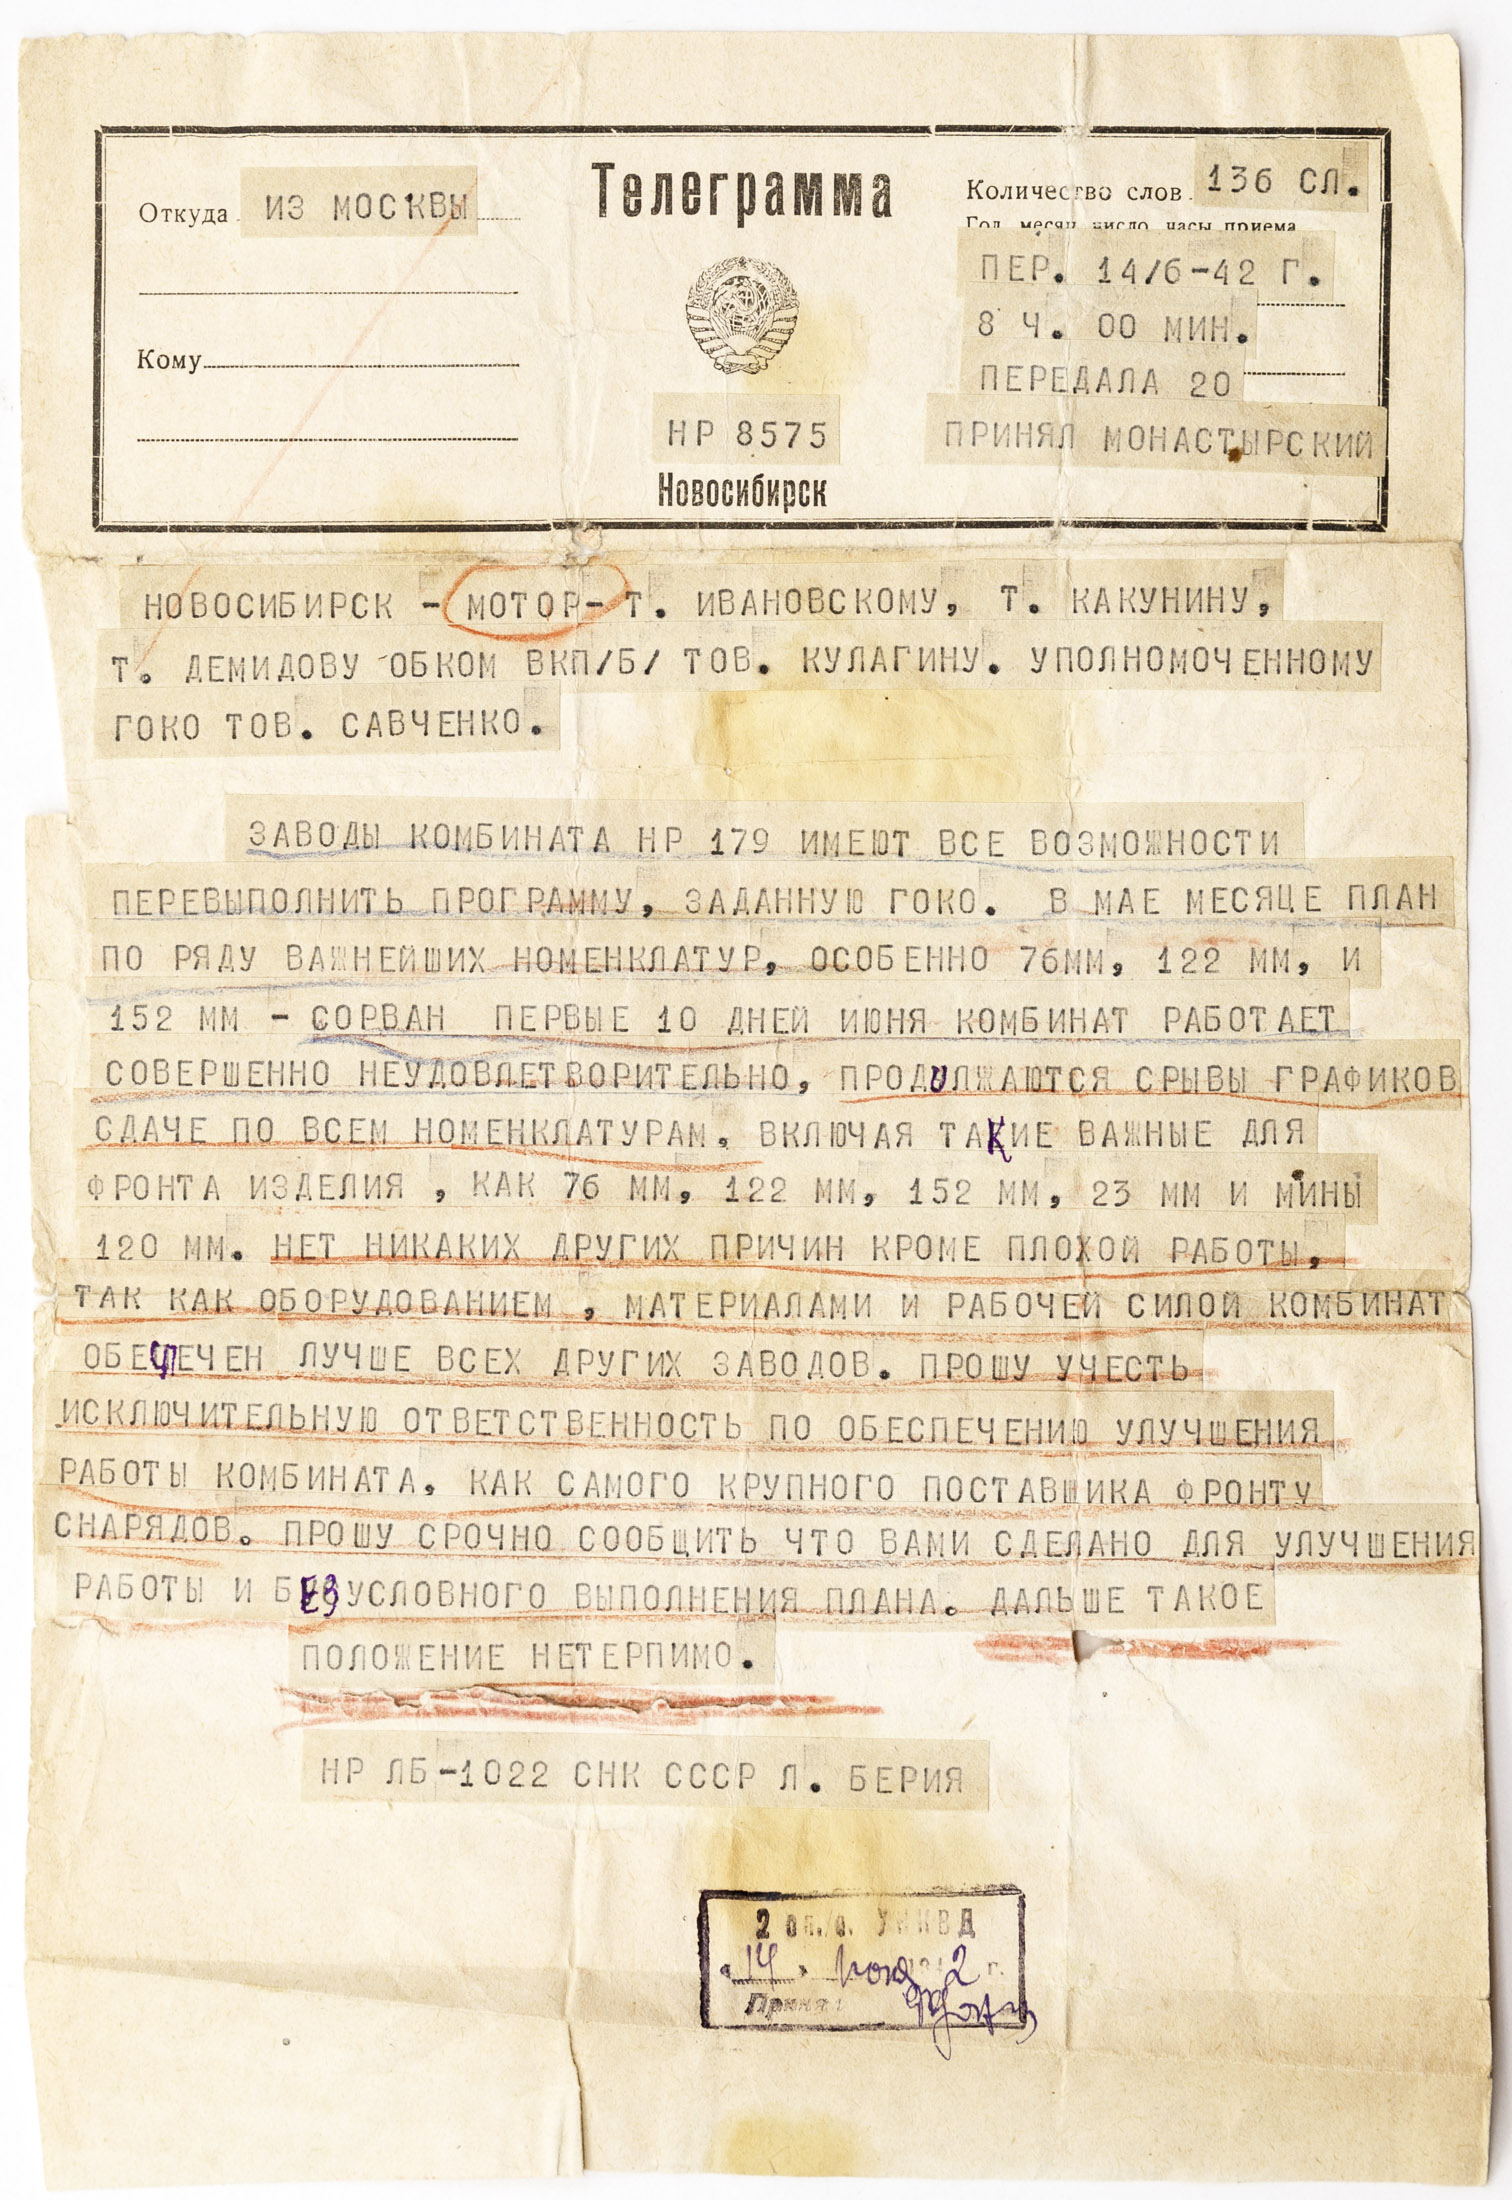 Телеграмма
Откуда ИЗ МОСКВЫ
Количество слов 136 СЛ.
Год, месяц, число, часы приема
ПЕР. 14/6-42 Г.
8 Ч. 00 МИН.
Кому
ПЕРЕДАЛА 20
НР 8575
ПРИНЯЛ МОНАСТЫРСКИЙ
Новосибирск
НОВОСИБИРСК - МОТОР- Т. ИВАНОВСКОМУ, Т. КАКУНИНУ,
Т. ДЕМИДОВУ ОБКОМ ВКП/Б/ ТОВ. КУЛАГИНУ. УПОЛНОМОЧЕННОМУ
ГОКО ТОВ. САВЧЕНКО.
ЗАВОДЫ КОМБИНАТА НР 179 ИМЕЮТ ВСЕ ВОЗМОЖНОСТИ
ПЕРЕВЫПОЛНИТЬ ПРОГРАММУ, ЗАДАННУЮ ГОКО. В МАЕ МЕСЯЦЕ ПЛАН
ПО РЯДУ ВАЖНЕЙШИХ НОМЕНКЛАТУР, ОСОБЕННО 76ММ, 122 ММ, И
152 ММ - СОРВАН ПЕРВЫЕ 10 ДНЕЙ ИЮНЯ КОМБИНАТ РАБОТАЕТ
СОВЕРШЕННО НЕУДОВЛЕТВОРИТЕЛЬНО, ПРОДОЛЖАЮТСЯ СРЫВЫ ГРАФИКОВ
СДАЧЕ ПО ВСЕМ НОМЕНКЛАТУРАМ, ВКЛЮЧАЯ ТАКИЕ ВАЖНЫЕ ДЛЯ
ФРОНТА ИЗДЕЛИЯ , КАК 76 ММ, 122 ММ, 152 ММ, 23 ММ И МИНЫ
120 ММ. НЕТ НИКАКИХ ДРУГИХ ПРИЧИН КРОМЕ ПЛОХОЙ РАБОТЫ,
ТАК КАК ОБОРУДОВАНИЕМ , МАТЕРИАЛАМИ И РАБОЧЕЙ СИЛОЙ КОМБИНАТ
ОБЕСПЕЧЕН ЛУЧШЕ ВСЕХ ДРУГИХ ЗАВОДОВ. ПРОШУ УЧЕСТЬ
ИСКЛЮЧИТЕЛЬНУЮ ОТВЕТСТВЕННОСТЬ ПО ОБЕСПЕЧЕНИЮ УЛУЧШЕНИЯ
РАБОТЫ КОМБИНАТА, КАК САМОГО КРУПНОГО ПОСТАВЩИКА ФРОНТУ
СНАРЯДОВ. ПРОШУ СРОЧНО СООБЩИТЬ ЧТО ВАМИ СДЕЛАНО ДЛЯ УЛУЧШЕНИЯ
РАБОТЫ И БЕЗУСЛОВНОГО ВЫПОЛНЕНИЯ ПЛАНА. ДАЛЬШЕ ТАКОЕ
ПОЛОЖЕНИЕ НЕТЕРПИМО.
НР ЛБ-1022 СНК СССР Л. БЕРИЯ
2 УНКВД
"14" 2 г.
Принял